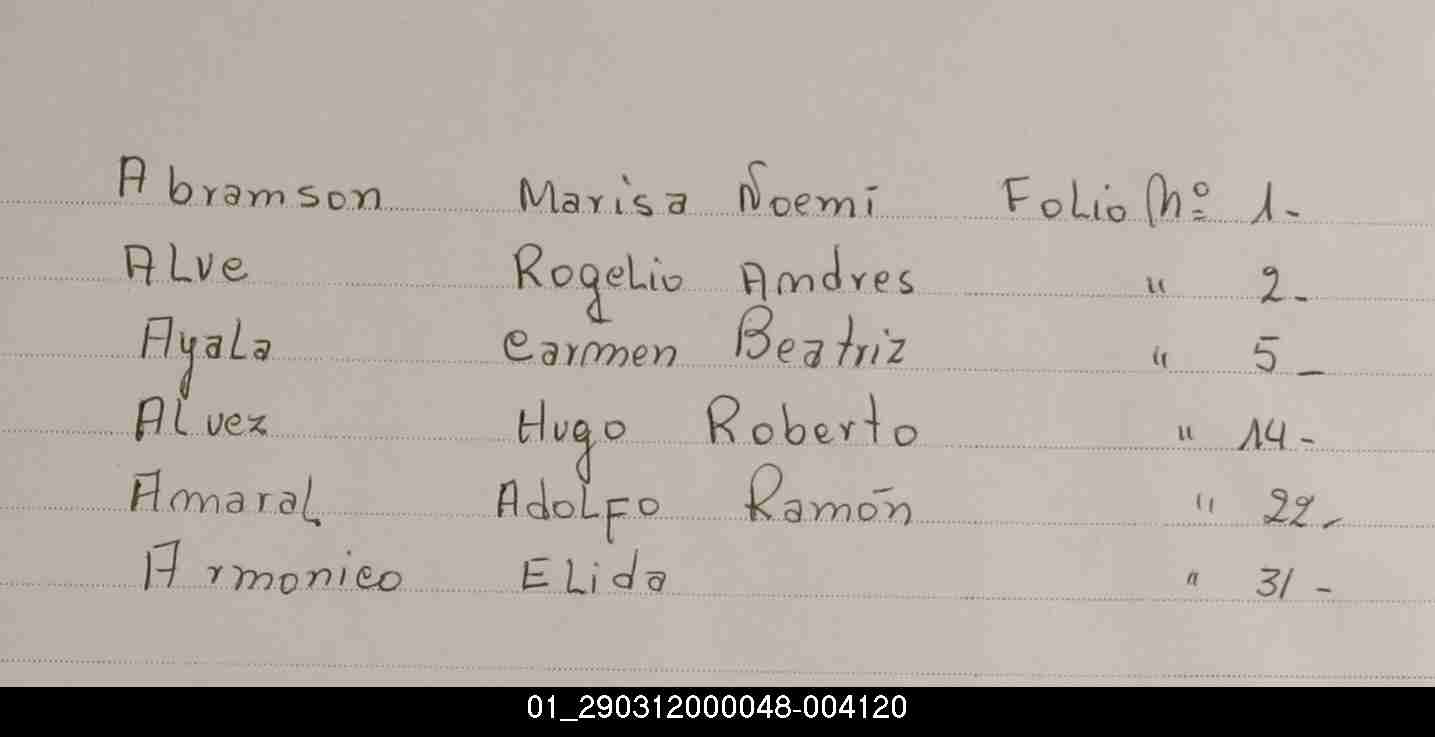 Abramson Marisa Noemi Folio Nº 1-
Alve Rogelio Andres " 2-
Ayala Carmen Beatriz " 5-
Alvez Hugo Roberto " 14-
Amaral Adolfo Ramón " 22-
Armonico Elida " 31-
01_290312000048-004120